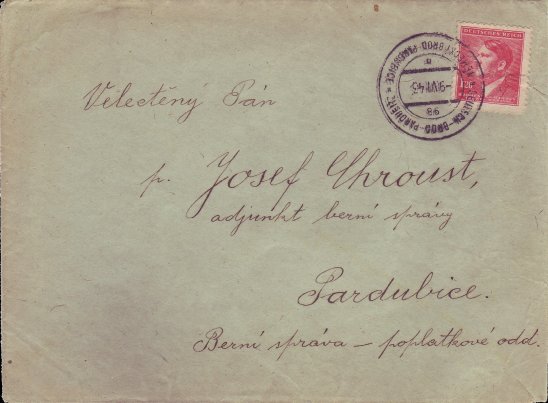 DEUTSCHES REICH
-9.VI.43
98
Velectěný Pán
p. Josef Chroust,
adjunkt berní správy
Pardubice.
Berní správa – poplatkové odd.